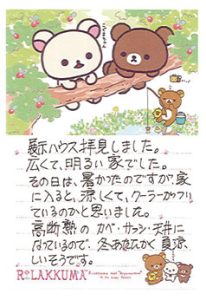 展示ハウス拝見しました。
広くて、明るい家でした。
その日は、暑かったのですが、家
に入ると、涼しくて、クーラーがついて
いるのかと思いました。
高断熱の カベ・サッシ・天井に
なっているので、冬あ暖かく夏涼
しいそうです。
RILAKKUMA